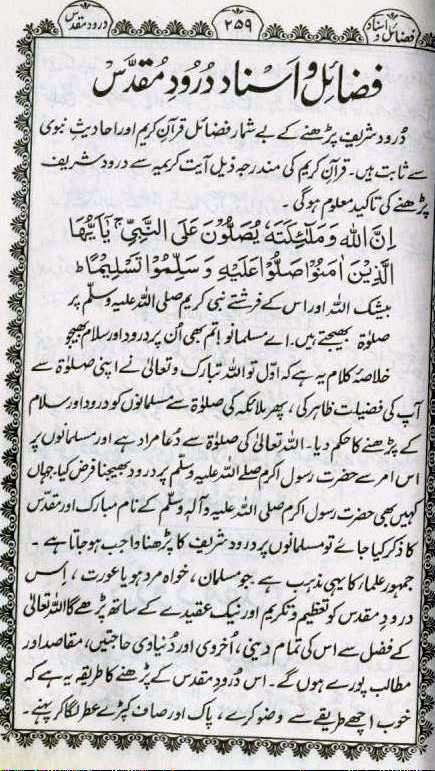 فضائل و اسناد
۲۵۹
درود مقدس
فضائل و اسناد دُرُودِ مُقدَّس
دُرود شریف پڑھنے کے بے شمار فضائل قرآنِ کریم اور احادیثِ نبوی
سے ثابت ہیں۔ قرآنِ کریم کی مندرجہ ذیل آیت کریمہ سے درود شریف
پڑھنے کی تاکید معلوم ہوگی۔
اِنَّ اللّٰهَ وَمَلٰٓئِكَتَهٗ يُصَلُّوْنَ عَلَى النَّبِيِّ ؕ يٰٓاَيُّهَا
الَّذِيْنَ اٰمَنُوْا صَلُّوْا عَلَيْهِ وَسَلِّمُوْا تَسْلِيْمًا ؕ
بیشک اللہ اور اس کے فرشتے نبی کریم صلی اللہ علیہ وسلّم پر
صلوٰۃ بھیجتے ہیں۔ اے مسلمانو! تم بھی اُن پر درود اور سلام بھیجو
خلاصۂ کلام یہ ہے کہ اوّل تو اللہ تبارک و تعالیٰ نے اپنی صلوٰۃ سے
آپ کی فضیلت ظاہر کی، پھر ملائکہ کی صلوٰۃ سے مسلمانوں کو درود اور سلام
کے پڑھنے کا حکم دیا۔ اللہ تعالیٰ کی صلوٰۃ سے دُعا مراد ہے اور مسلمانوں پر
اس امر سے حضرت رسول اکرم صلے اللہ علیہ وسلّم پر درود بھیجنا فرض کیا۔ جہاں
کہیں بھی حضرت رسول اکرم صلی اللہ علیہ وآلہٖ وسلّم کے نام مبارک اور مقدّس
کا ذکر کیا جائے تو مسلمانوں پر درود شریف کا پڑھنا واجب ہو جاتا ہے۔
جمہور علماء کا یہی مذہب ہے جو مسلمان، خواہ مرد ہو یا عورت، اِس
درودِ مقدس کو تعظیم و تکریم اور نیک عقیدے کے ساتھ پڑھے گا اللہ تعالیٰ
کے فضل سے اس کی تمام دینی، اُخروی اور دُنیاوی حاجتیں، مقاصد اور
مطالب پورے ہوں گے۔ اس دُرودِ مقدس کے پڑھنے کا طریقہ یہ ہے کہ
خوب اچھے طریقے سے وضو کرے، پاک اور صاف کپڑے عطر لگا کر پہنے۔